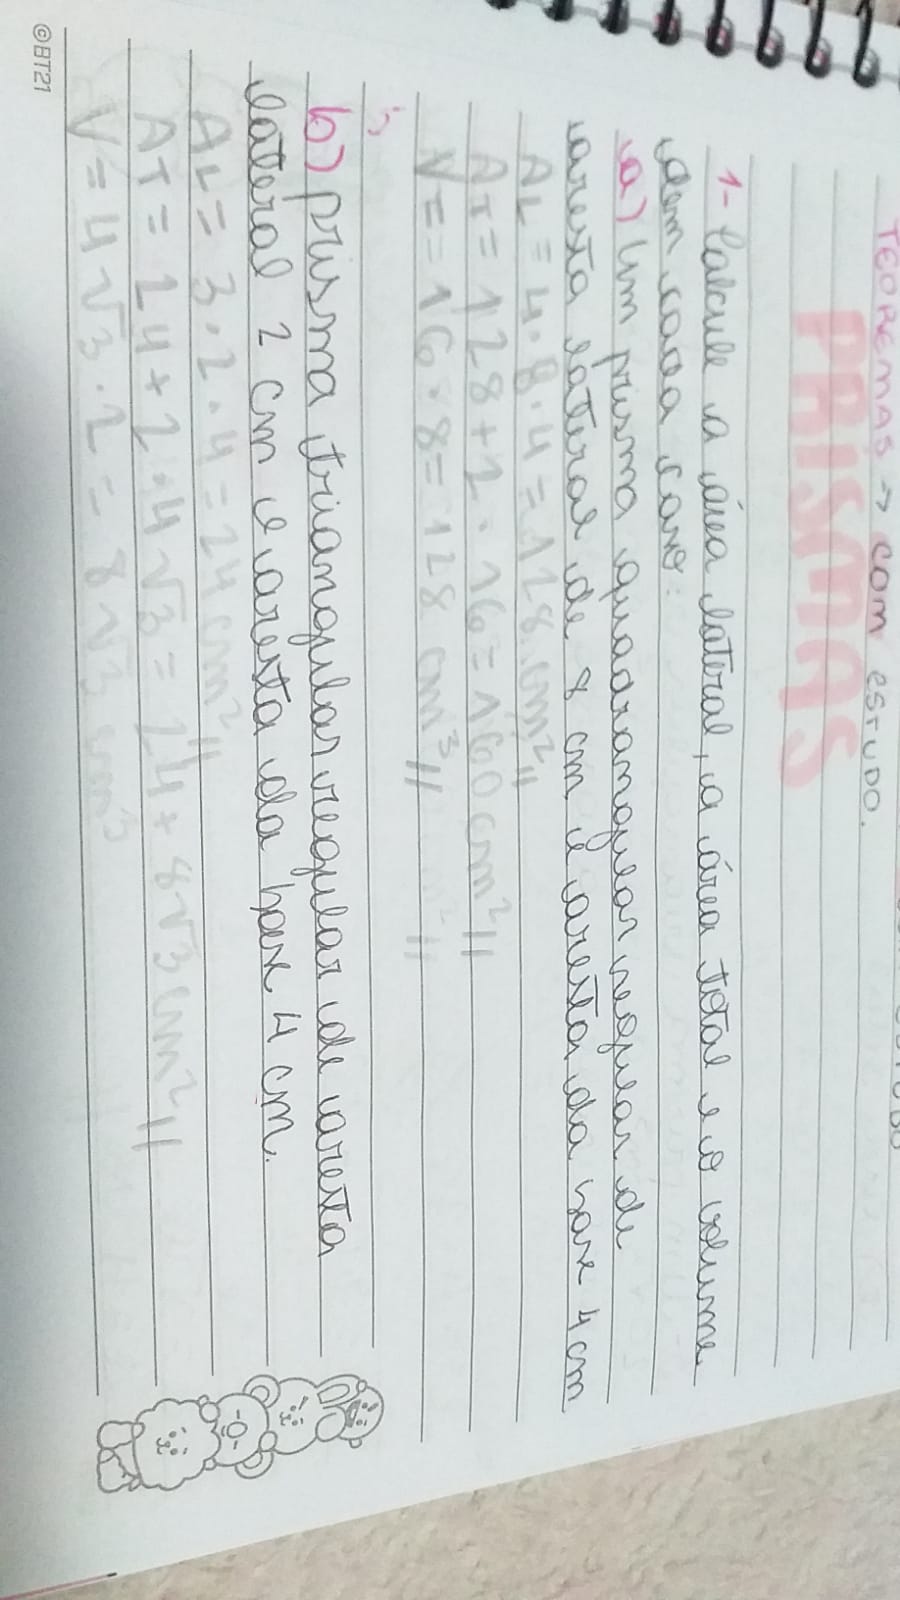 TEOREMAS → COM ESTUDO.
PRISMAS
1- Calcule a área lateral, a área total e o volume
em cada caso:
a) Um prisma quadrangular regular de
aresta lateral de 8 cm e aresta da base 4 cm
AL = 4·8·4 = 128 cm²//
AT = 128 + 2·16 = 160 cm²//
V = = 16·8 = 128 cm³//
b) prisma triangular regular de aresta
lateral 2 cm e aresta da base 4 cm.
AL = 3·2·4 = 24 cm²//
AT = 24 + 2·4√3 = 24 + 8√3 cm²//
V = 4√3·2 = 8√3 cm³
©BT21